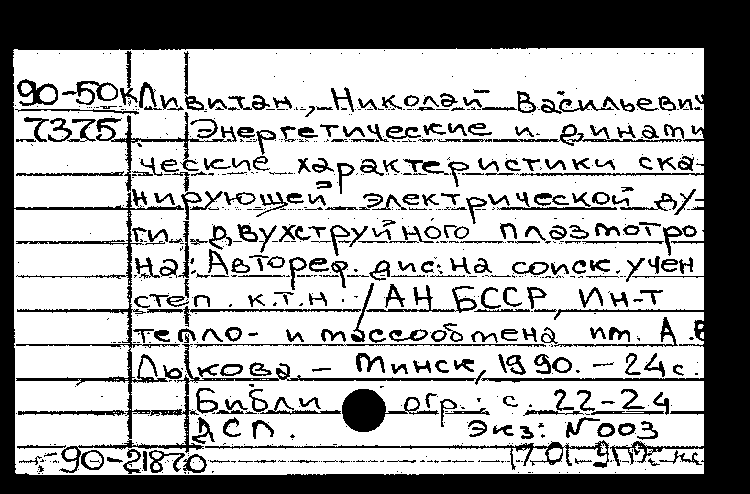 90-50к Ливитан, Николай Васильевич
7375 Энергетические и динами
ческие характеристики ска-
нирующей электрической ду-
ги двухструйного плазмотро
на: Автореф. дис. на соиск. учен
степ. к.т.н. / АН БССР, Ин-т
тепло- и массообмена им. А.В
Лыкова. – Минск, 1990. – 24с.
Библиогр.: с. 22-24
ДСП. Экз: №003
90-21870